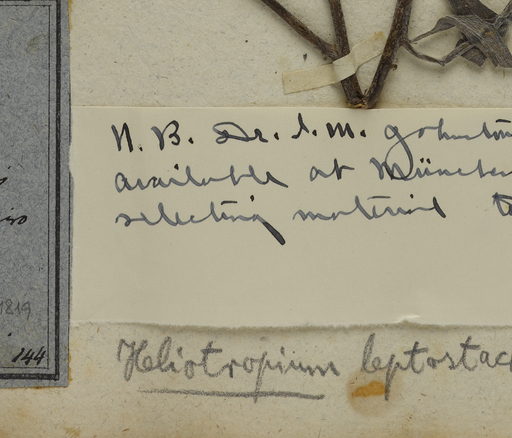 N. B. Dr. I. M. Johnston
available at München
selecting material
Heliotropium leptostac
1819
144